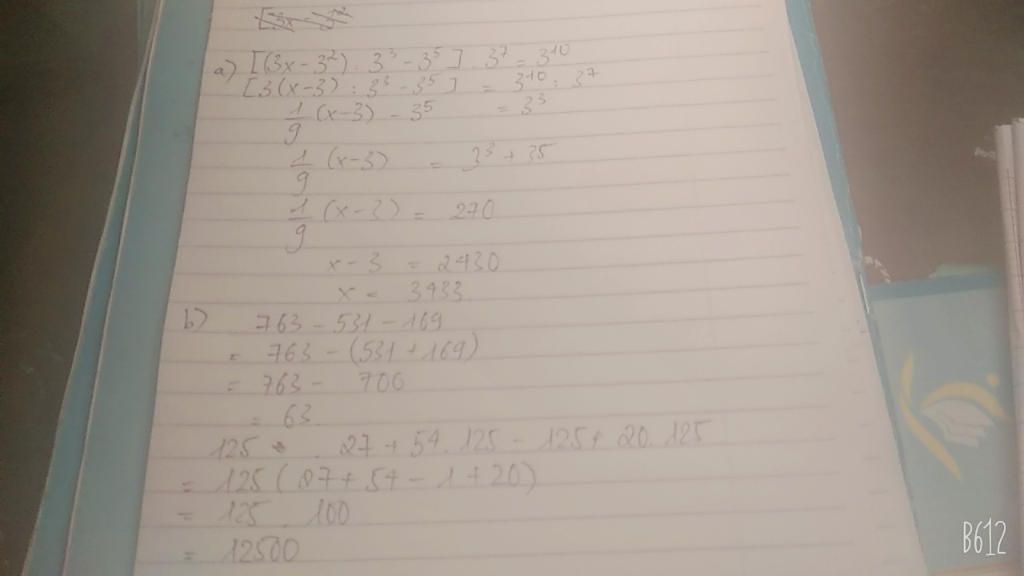 a) [(3x - 3²) : 3³ - 3⁵] . 3⁷ = 3¹⁰
[3(x-3) : 3³ - 3⁵] = 3¹⁰ : 3⁷
1/9 (x-3) - 3⁵ = 3³
1/9 (x-3) = 3³ + 35
1/9 (x-3) = 270
x - 3 = 2430
x = 3433
b) 763 - 531 - 169
= 763 - (531 + 169)
= 763 - 700
= 63
125 . 27 + 54 . 125 - 125 + 20 . 125
= 125 (27 + 54 - 1 + 20)
= 125 . 100
= 12500
B612